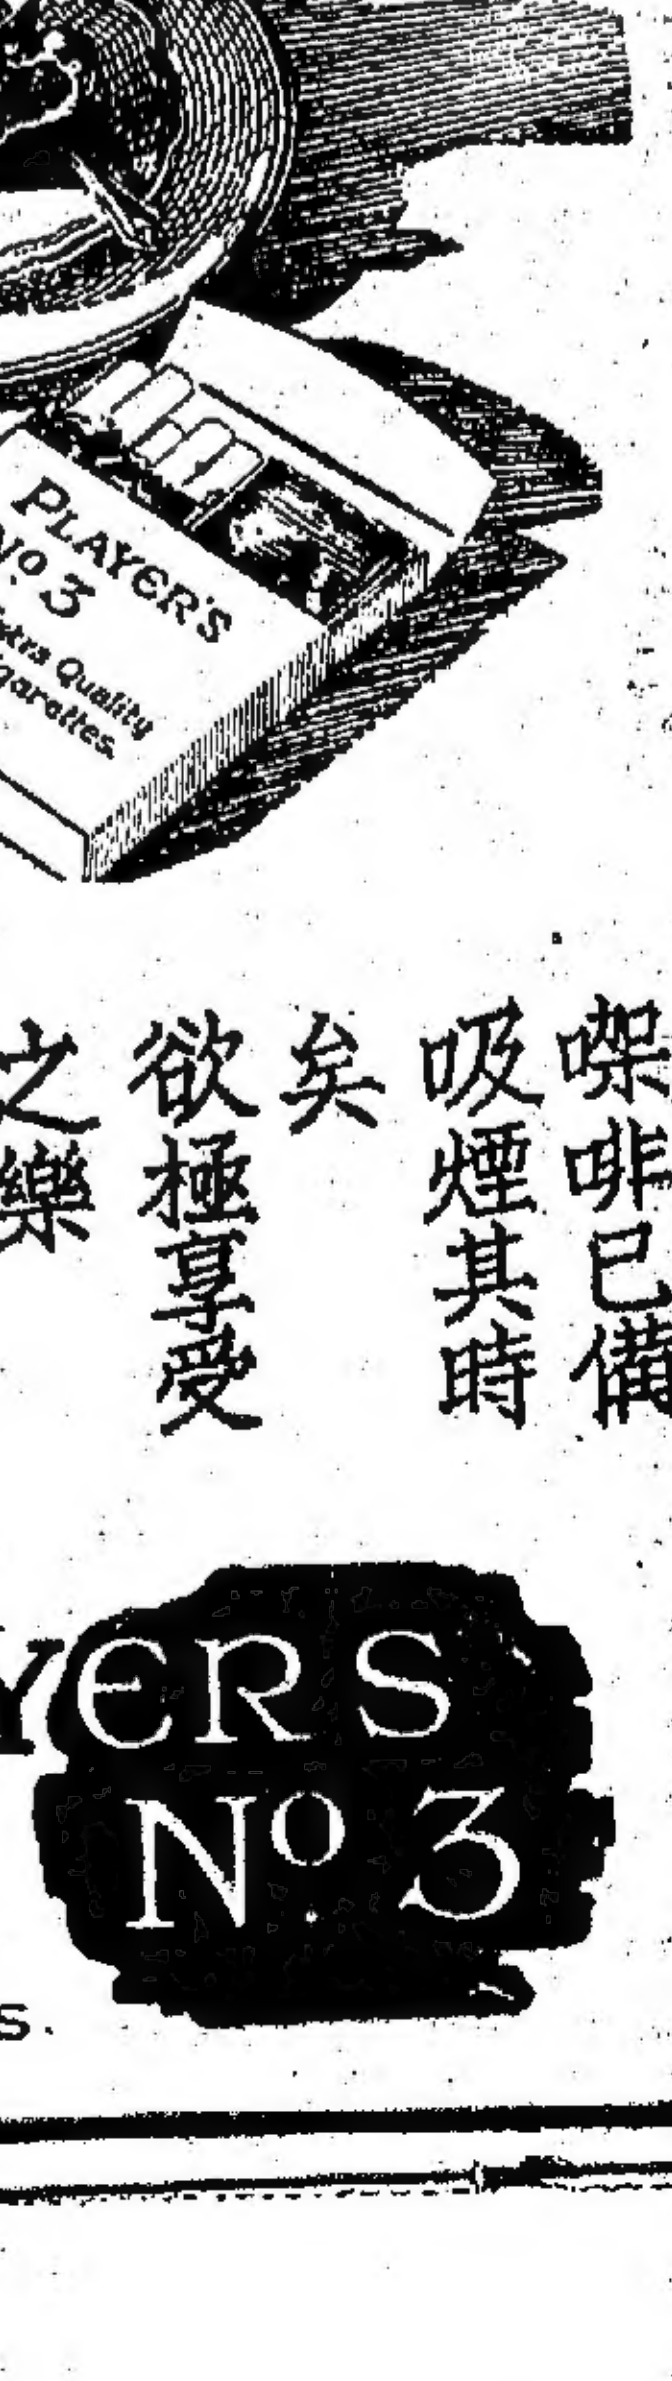 PLAYER'S
No 3
Extra Quality
Cigarettes.
㗎啡已備
吸煙其時
矣
欲極享受
之樂
YERS
No. 3
s.